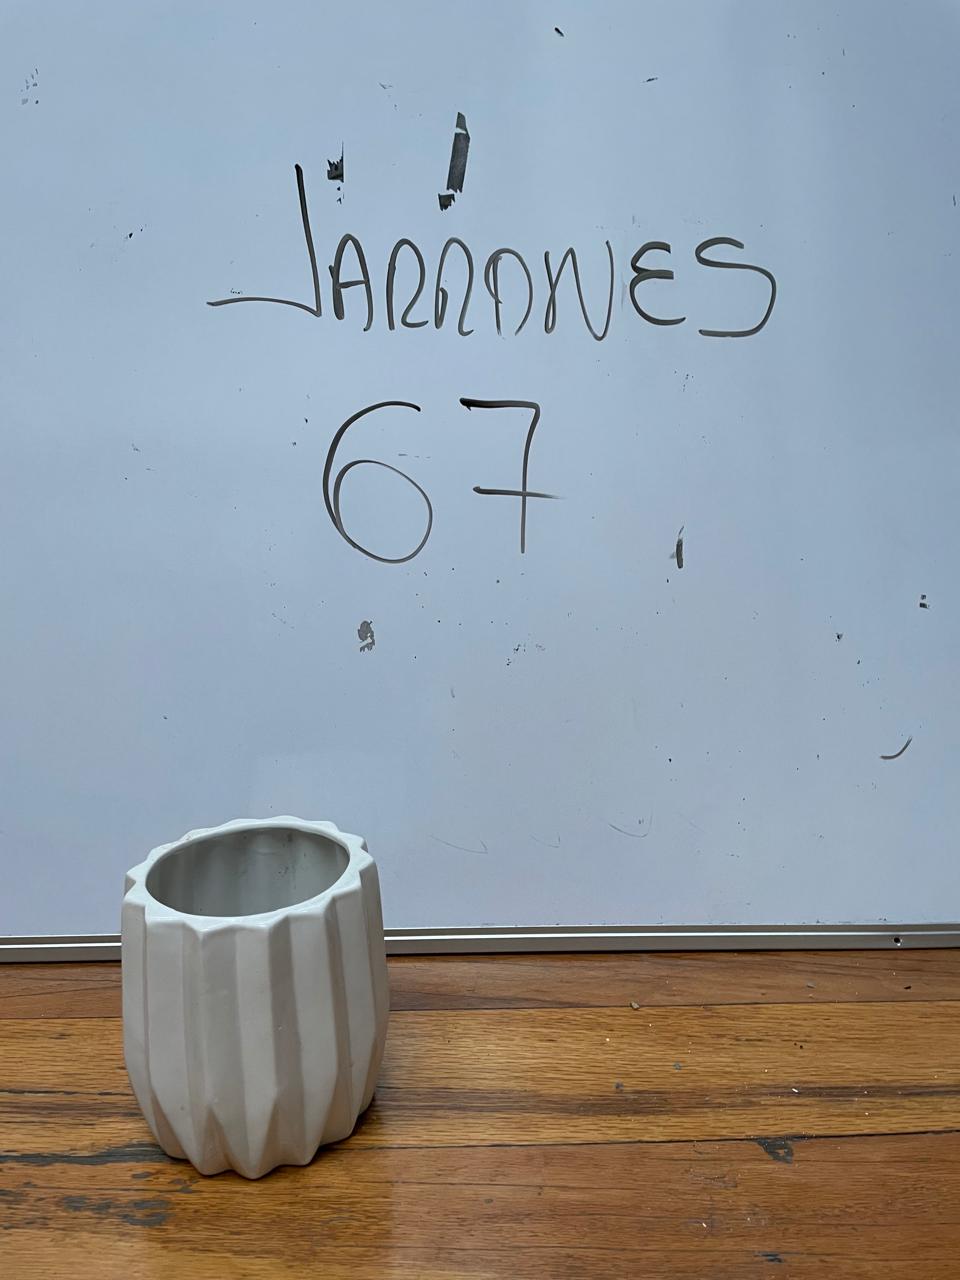 JARRONES
67